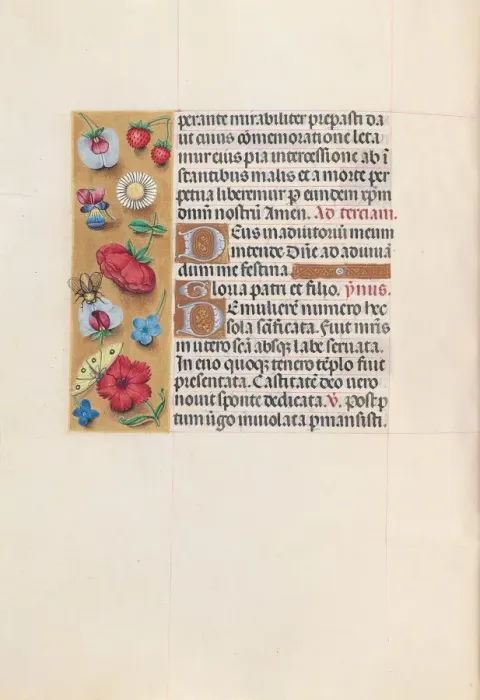 perante mirabiliter prepasti da
ut cuius cōmemoratione leta
mur eius pia intercessione ab ī
stantibus malis et a morte per
petua liberemur p eundem xpm
dnm nostrū Amen. Ad terciam.
Deus in adiutoriū meum
intende Dne ad adiuuā
dum me festina.
Gloria patri et filio. ymus.
De mulierē numero hec
sola scīficata. Fuit mris
in utero scā absq; labe seruata.
In euo quoq; tenero tēplo fuit
presentata. Castitatē deo uero
nouit sponte dedicata. V. Post p
tum ūgo inuiolata pmansisti.